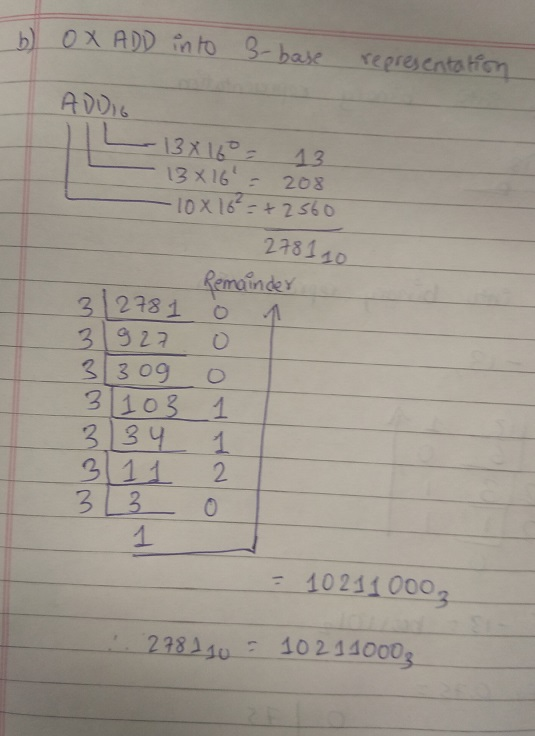 b) 0X ADD into 3-base representation
ADD₁₆
13×16⁰ = 13
13×16¹ = 208
10×16² = + 2560
2781₁₀
Remainder
3 2781 0
3 927 0
3 309 0
3 103 1
3 34 1
3 11 2
3 3 0
1
= 10211000₃
∴ 2781₁₀ = 10211000₃